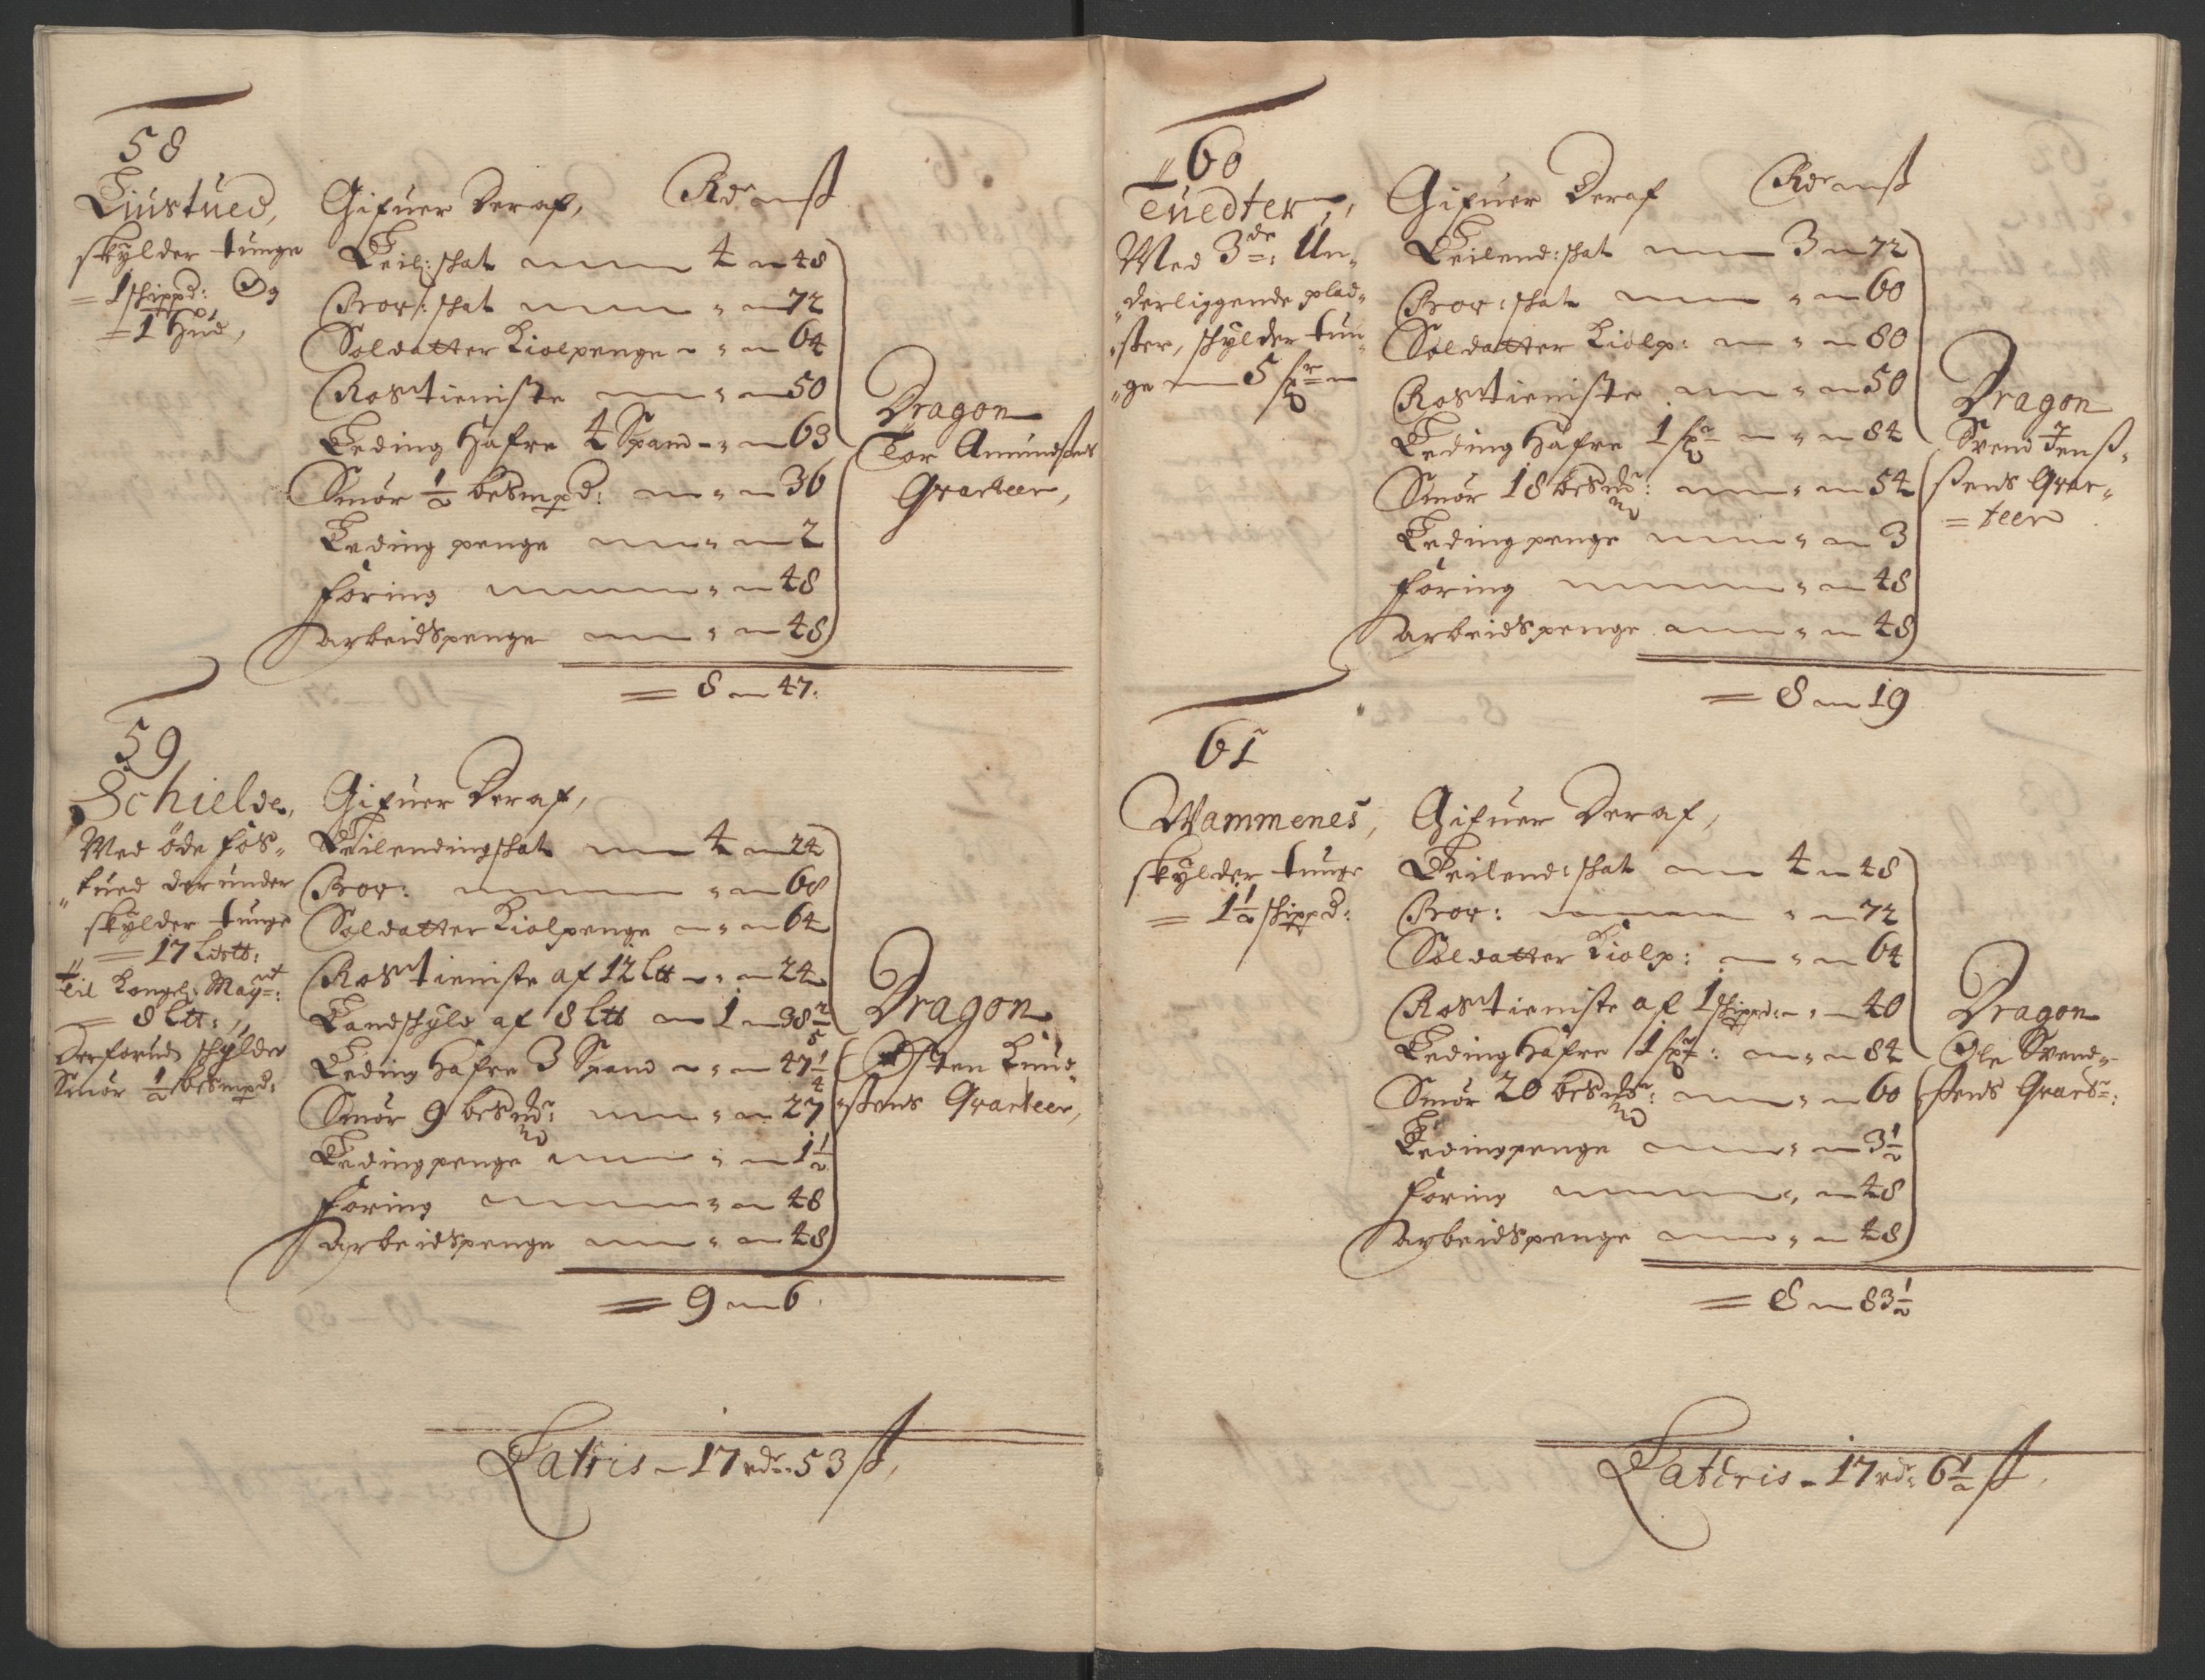 58
Liustued,
skylder tunge
= 1 schippd: Og
= 1 Hud,
Gifuer Deraf, Rdr ß
Leil: skat 4 48
Prov: skat " 72
Soldatter Kiolpenge " 64
Rostieniste " 50
Leding Hafre 4 Spand " 63
Smör ½ besmpd: " 36
Leding penge " 2
Foring " 48
Arbeidspenge " 48
= 8 47.
Dragon
Tor Amundsens
Qvarteer,
59
Schielde,
Med öde Fos-
"tued der under
skylder tunge
= 17 Lis℔:
til Kongel: Mayt:
= 8 L℔:,
Derforud schylder
Smör ½ besmpd:
Gifuer Deraf,
Leilendingskat 4 24
Prov: " 68
Soldatter Kiolpenge " 64
Rostieniste af 12 L℔ " 24
Landschyld af 8 L℔ 1 38 2/5
Leding Hafre 3 Spand " 47 1/4
Smör 9 besmr: " 27
Ledingpenge " 1½
Foring " 48
Arbeidspenge " 48
= 9 6.
Dragon
Osten Knud-
"sens Qvarteer,
Latris - 17 rdr: 53 ß,
60
Tuedten,
Med 3de: Un-
"derliggende plad-
"ser, schylder tun-
"ge 5 spr
Gifuer Deraf Rdr ß
Leilend: skat 3 72
Prov: skat " 60
Soldatter Kiolp: " 80
Rostieniste " 50
Leding Hafre 1 spr " 84
Smör 18 besmr: " 54
Ledingpenge " 3
Foring " 48
Arbeidspenge " 48
= 8 19
Dragon
Svend Jenß-
sens Qvar-
= teer
61
Wammenes,
skylder tunge
= 1½ schippd:
Gifuer Deraf,
Leilend: skat 4 48
Prov: " 72
Soldatter Kiolp: " 64
Rostieniste af 1 schippd: " 40
Leding Hafre 1 spr: " 84
Smör 20 besmr: " 60
Ledingpenge " 3½
Foring " 48
Arbeidspenge " 48
= 8 83½
Dragon
Ole Svend-
sens Qvartr:
Lateris - 17 rdr: 6½ ß,